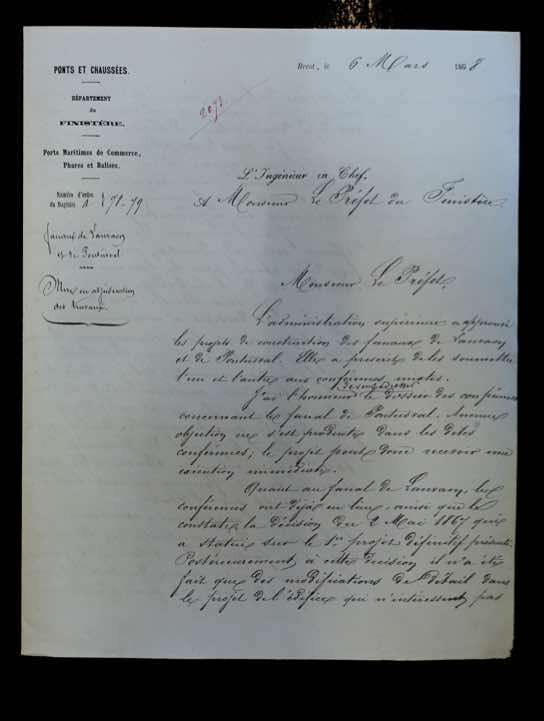 PONTS ET CHAUSSÉES.
DÉPARTEMENT
du
FINISTÈRE.
Ports Maritimes de Commerce,
Phares et Balises.
Numéro d'ordre
du Registre
78-79
fanaux de Lanvaon
et de Pontusval
Mise en adjudication
des travaux.
Brest, le 6 Mars 1868
2073
L'Ingénieur en Chef,
A Monsieur Le Préfet du Finistère.
Monsieur Le Préfet,
L'administration supérieure a approuvé
les projets de construction des fanaux de Lanvaon
et de Pontusval. Elle a prescrit de les soumettre
l'un et l'autre aux conférences mixtes.
J'ai l'honneur de vous adresser le dossier des conférences
concernant le fanal de Pontusval. Aucune
objection ne s'est produite dans les dites
conférences; le projet peut donc recevoir une
exécution immédiate.
Quant au fanal de Lanvaon, les
conférences ont déjà eu lieu, ainsi que le
constate la décision du 2 Mai 1867 qui
a statué sur le 1er projet définitif présenté.
Postérieurement à cette décision il n'a été
fait que des modifications de détail dans
le projet de l'édifice qui n'intéressent pas